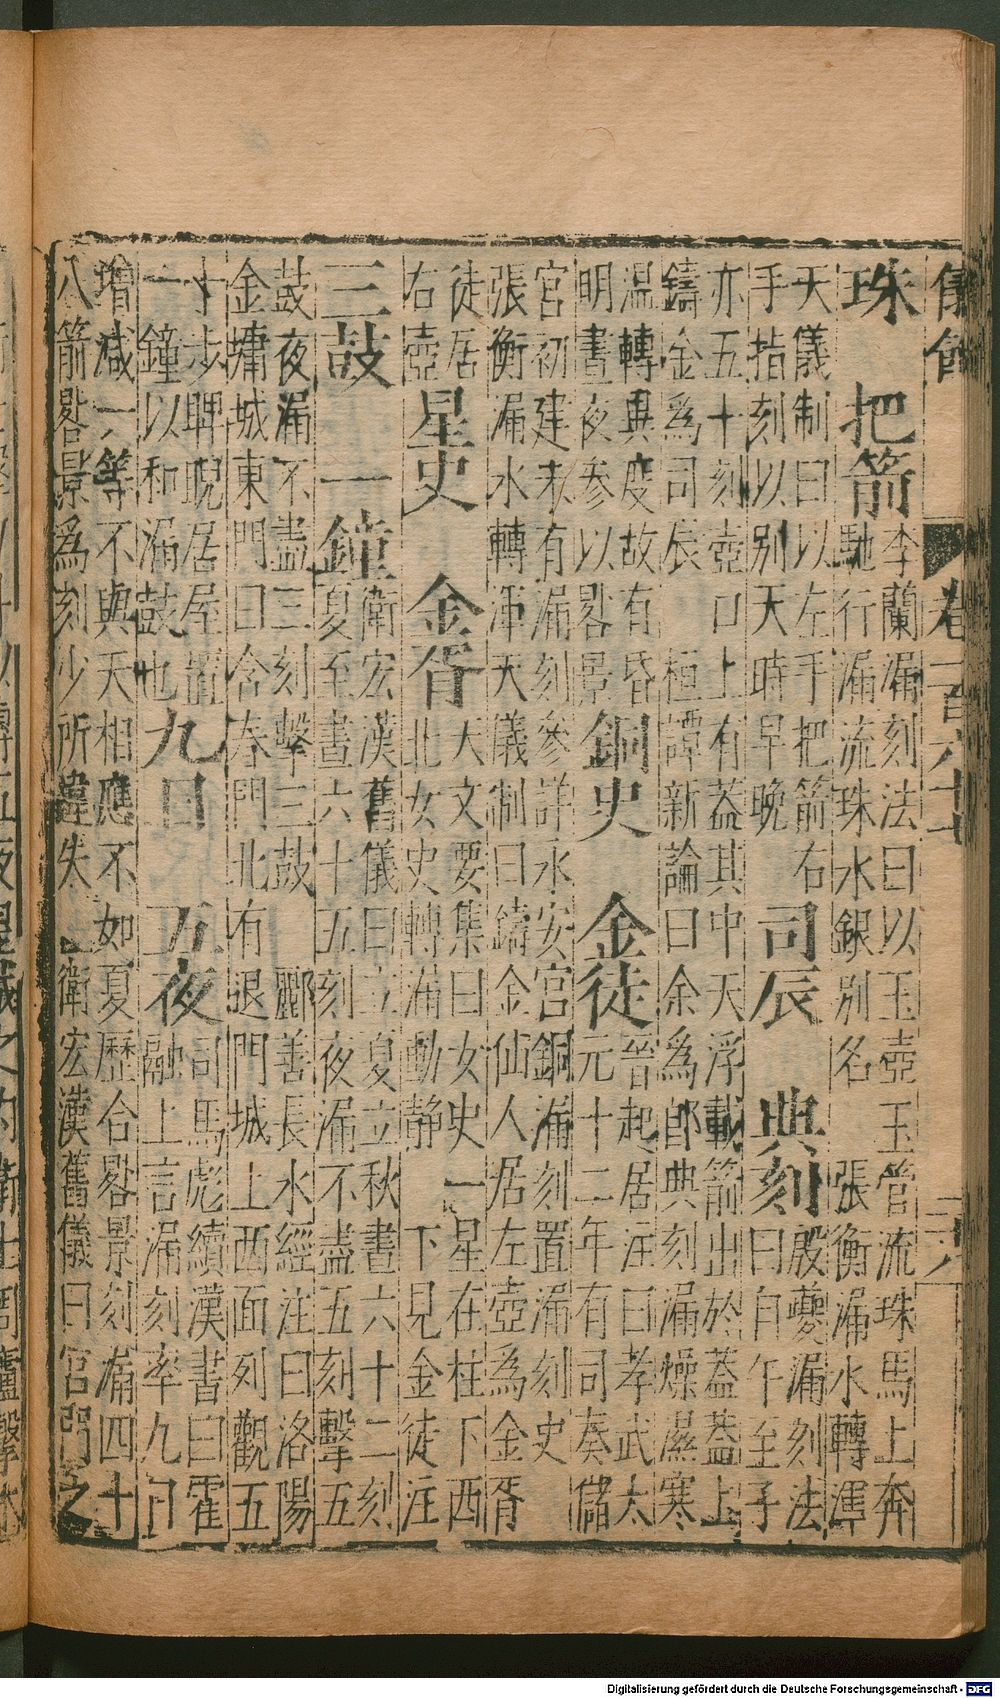 珠　把箭
李蘭漏刻法曰以玉壺玉管流珠馬上奔
馳行漏流珠水銀別名　張衡漏水轉渾
天儀制曰以左手把箭右
手指刻以別天時早晚
司辰　典刻
殷夔漏刻法
曰自午至子
亦五十刻壺口上有蓋其中天浮載箭出於蓋蓋上
鑄金為司辰　桓譚新論曰余為郎典刻漏燥濕寒
溫轉異度故有昏
明晝夜參以晷景
銅史　金徒
晉起居注曰孝武太
元十二年有司奏儲
宮初建未有漏刻參詳永安宮銅漏刻置漏刻史
張衡漏水轉渾天儀制曰鑄金仙人居左壺為金胥
徒居
右壺
星史　金胥
天文要集曰女史一星在柱下西
北女史轉漏動静　下見金徒注
三鼓　一鐘
衛宏漢舊儀曰立夏立秋晝六十二刻
夏至晝六十五刻夜漏不盡五刻擊五
鼓夜漏不盡三刻擊三鼓　酈善長水經注曰洛陽
金墉城東門曰含春門北有退門城上西面列觀五
十步睥睨居屋置
一鐘以和漏鼓也
九日　五夜
司馬彪續漢書曰霍
融上言漏刻率九日
增減一等不與天相應不如夏歷合晷景刻漏四十
八箭晷景為刻少所違失　衛宏漢舊儀曰宮門之
卷一百六十
Digitalisierung gefördert durch die Deutsche Forschungsgemeinschaft - DFG